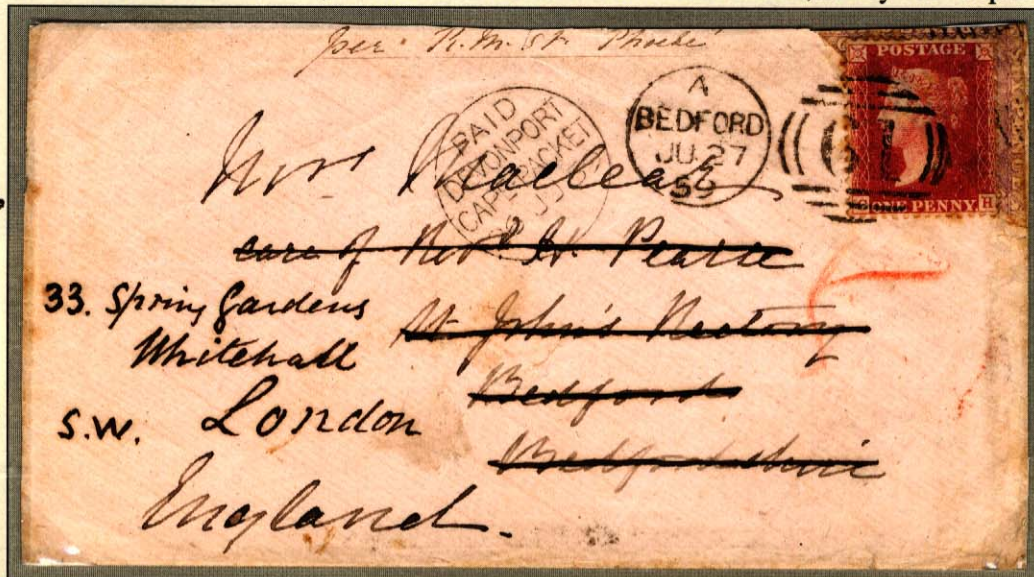 per R.M.St. Phoebe
PAID
DEVONPORT
CAPE PACKET
JU
A
BEDFORD
JU 27
59
POSTAGE
ONE PENNY
H
Mrs Maclear
care of Revd. H. Pearse
St John's Rectory
Bedford
Bedfordshire
33. Spring Gardens
Whitehall
S.W. London
England.